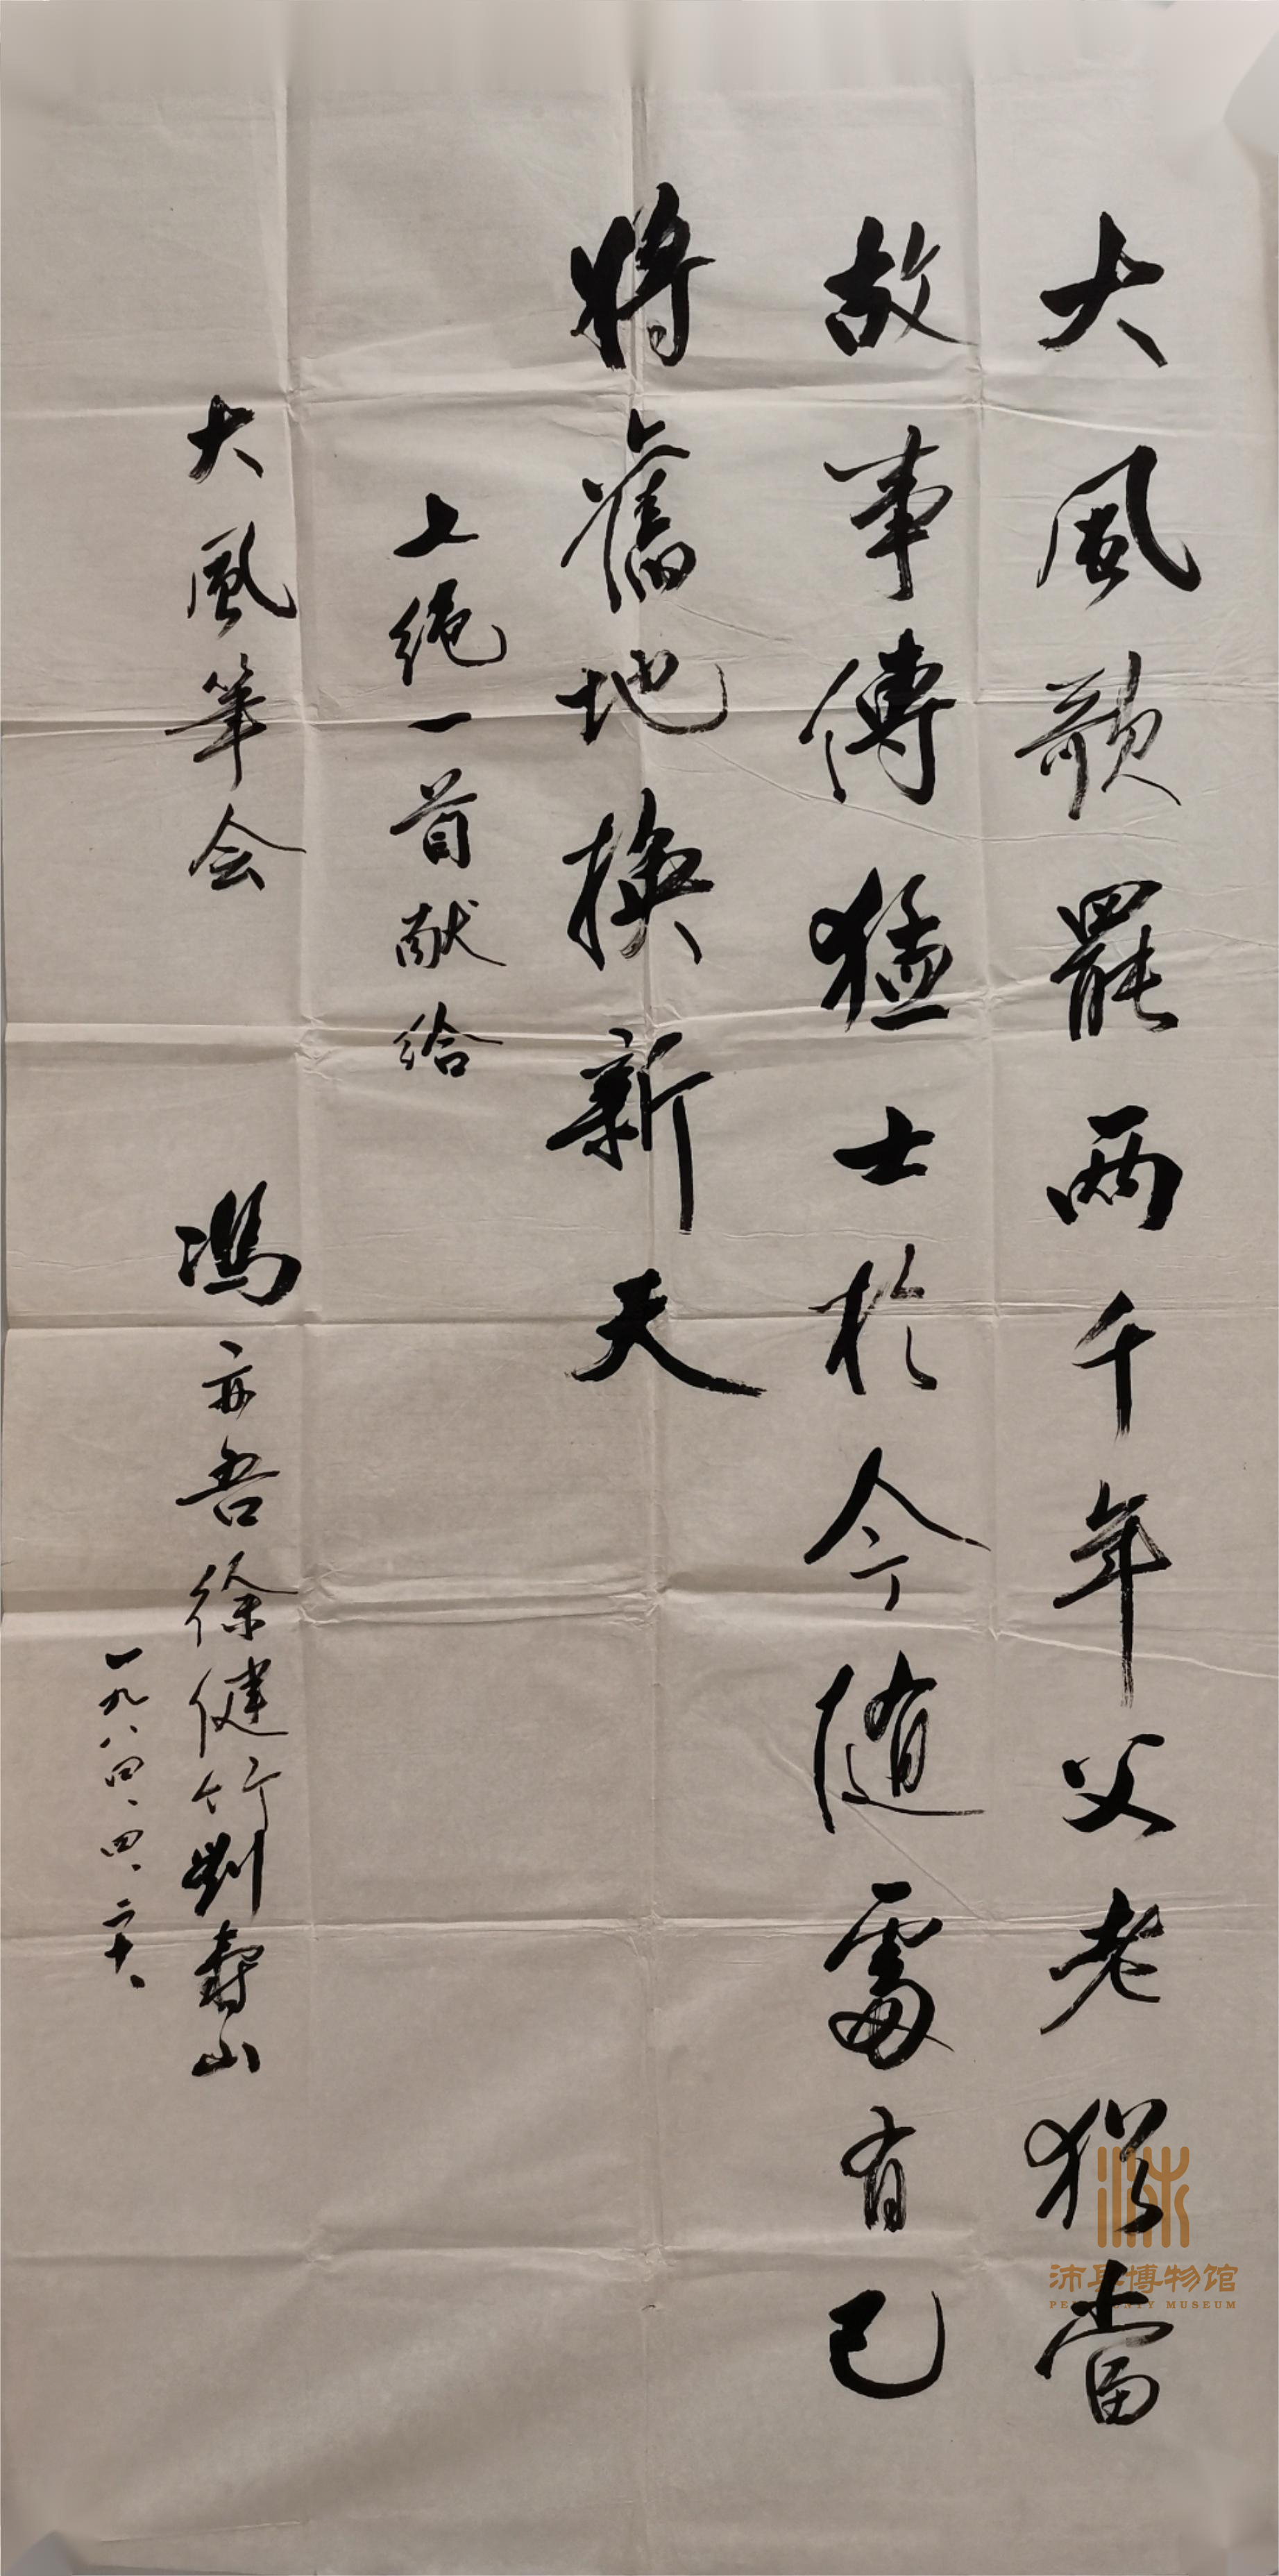 大風歌罷两千年父老猶當
故事傳猛士於今随處有已
將舊地換新天
上绝一首献给
大風筆会 馮亦吾徐健竹劉壽山
一九八四、四、二十
沛县博物馆
PEI COUNTY MUSEUM